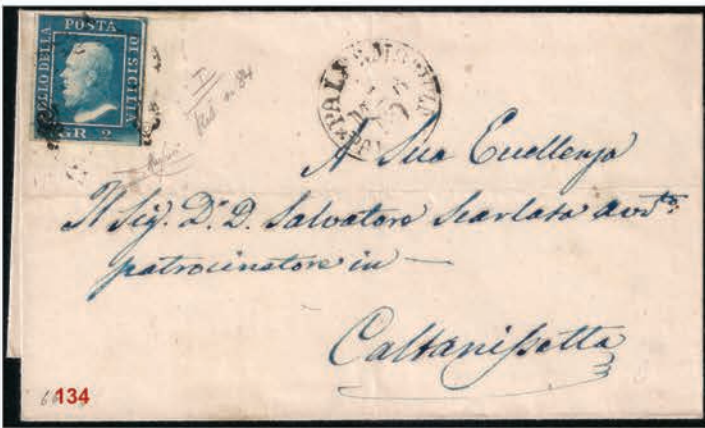 POSTA
BOLLO DELLA
DI SICILIA
GR. 2
I
PALERMO
A Sua Eccellenza
Il Sig. Dn. D. Salvatore Scarlata avvto.
patrocinatore in —
Caltanissetta
134